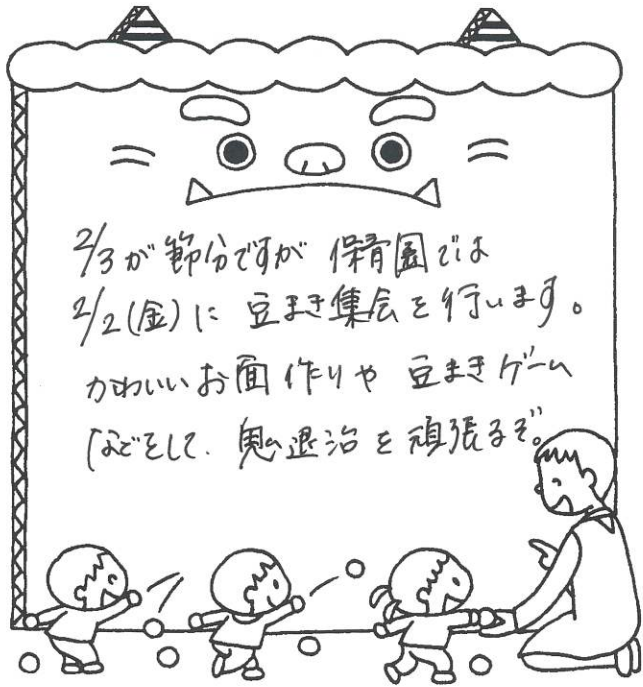 2/3が節分ですが 保育園では
2/2(金)に 豆まき集会を行います。
かわいいお面作りや 豆まきゲーム
などをして、鬼退治を頑張るぞ。